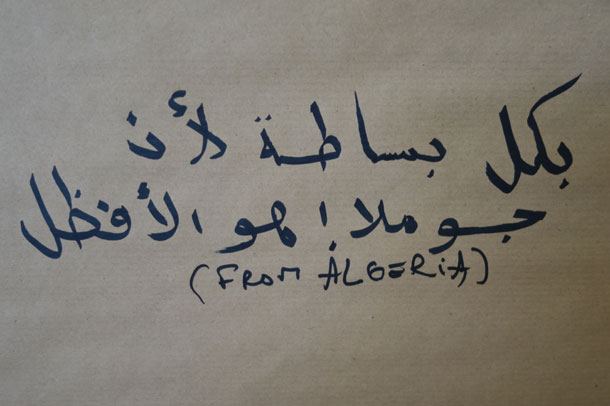 بكل بساطة لأن
جوملا! هو الأفظل
(FROM ALGERiA)